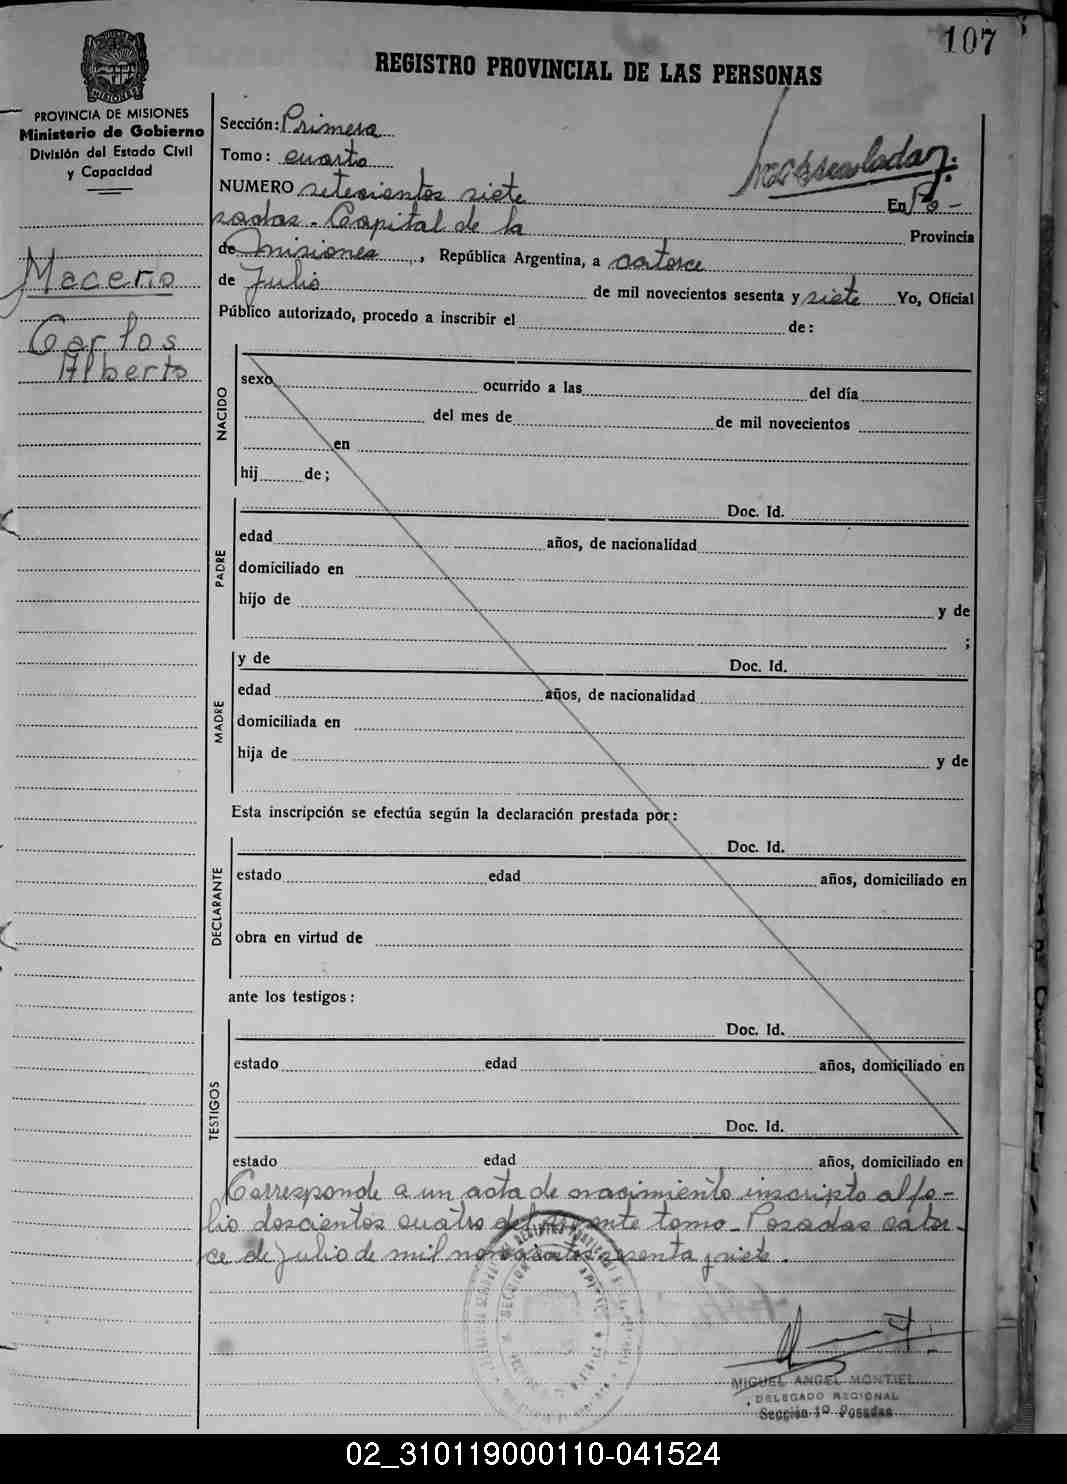 107
REGISTRO PROVINCIAL DE LAS PERSONAS
PROVINCIA DE MISIONES
Ministerio de Gobierno
División del Estado Civil
y Capacidad
Macerio
Carlos
Alberto
Sección: Primera
Tomo: cuarto
NUMERO setecientos siete En Po-
sadas - Capital de la Provincia
de Misiones, República Argentina, a catorce
de Julio de mil novecientos sesenta y siete Yo, Oficial
Público autorizado, procedo a inscribir el de:
NACIDO
sexo ocurrido a las del día
del mes de de mil novecientos
en
hij de;
PADRE
Doc. Id.
edad años, de nacionalidad
domiciliado en
hijo de y de
;
MADRE
y de Doc. Id.
edad años, de nacionalidad
domiciliada en
hija de y de
Esta inscripción se efectúa según la declaración prestada por:
DECLARANTE
Doc. Id.
estado edad años, domiciliado en
obra en virtud de
ante los testigos:
TESTIGOS
Doc. Id.
estado edad años, domiciliado en
Doc. Id.
estado edad años, domiciliado en
Corresponde a un acta de nacimiento inscripto al fo-
lio doscientos cuatro del presente tomo - Posadas cator-
ce de Julio de mil novecientos sesenta y siete.
MIGUEL ANGEL MONTIEL
DELEGADO REGIONAL
Sección 1º Posadas
02_310119000110-041524